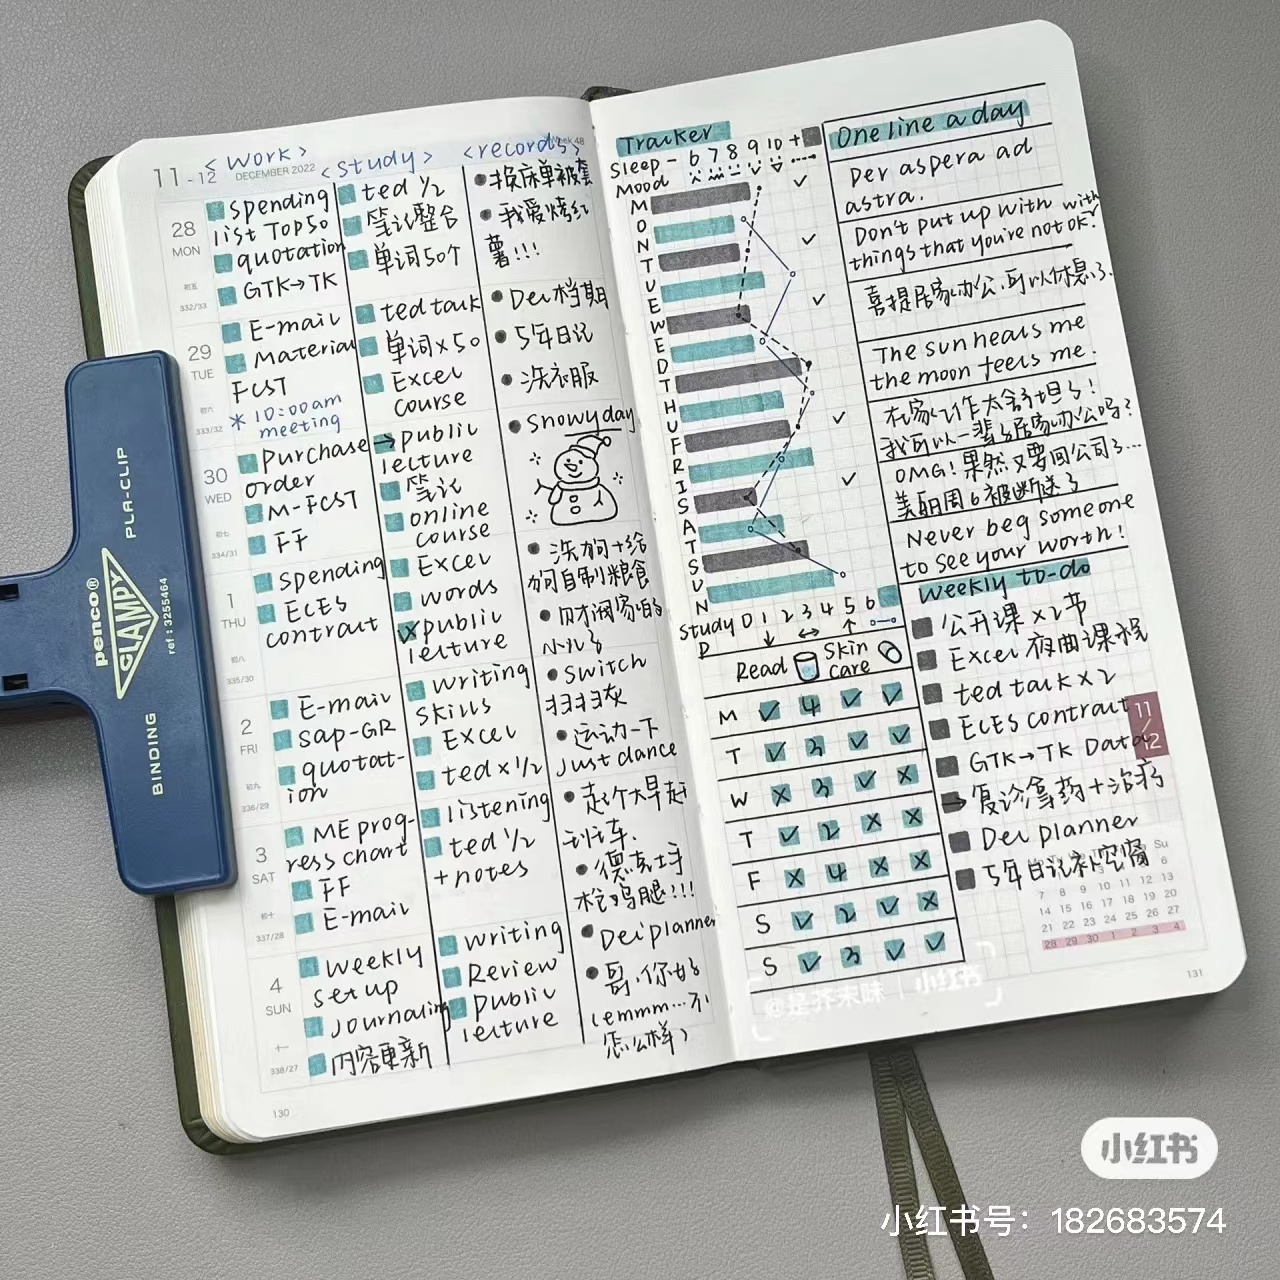 11-12
DECEMBER 2022
Week 48
<Work>
<study>
<records>
28
MON
初五
332/33
spending
list TOP50
quotation
GTK→TK
ted 1/2
笔记整合
单词50个
换床单被套
我爱烤红
薯!!!
29
TUE
初六
333/32
E-mail
Material
FCST
* 10:00am
meeting
ted talk
单词×50
Excel
course
Dei档期
5年日记
洗衣服
30
WED
初七
334/31
Purchase
order
M-FCST
FF
→public
lecture
笔记
online
course
Snowy day
1
THU
初八
335/30
spending
ECES
contract
Excel
words
public
lecture
洗狗+给
狗自制粮食
2
FRI
初九
336/29
E-mail
Sap-GR
quotat-
ion
writing
skills
Excel
ted×1/2
Switch
扫扫灰
运动一下
Just dance
3
SAT
初十
337/28
ME prog-
ress chart
FF
E-mail
listening
ted 1/2
+notes
起个大早赶
班车.
德克士手
枪鸡腿!!!
4
SUN
十一
338/27
weekly
set up
journaling
内容更新
writing
Review
public
lecture
Dei planner
哥,你好
(emmm...不
怎么样)
130
Tracker
Sleep - 6 7 8 9 10 +
Mood
M
O
N
T
U
E
W
E
D
T
H
U
F
R
I
S
A
T
S
U
N
Study 0 1 2 3 4 5 6
D
Read
Skin
care
M ✓ 4 ✓ ✓
T ✓ 3 ✓ ✓
W × 3 ✓ ×
T ✓ 2 × ×
F × 4 × ×
S ✓ 2 ✓ ×
S ✓ 3 ✓ ✓
One line a day
Per aspera ad
astra.
Don't put up with with
things that you're not ok!
喜提居家办公,可以休息了.
The sun heals me
the moon feels me.
在家工作太舒坦了!
我可以一辈子居家办公吗?
OMG!果然又要回公司了...
美丽周6被迷迷了
Never beg someone
to see your worth!
weekly to-do
公开课×2节
Excel 夜曲课程
ted talk×2
ECES contract
GTK→TK Data
复诊拿药+治病
Dei planner
5年日记补空窗
11
/
12
Su
6
7 8 9 10 11 12 13
14 15 16 17 18 19 20
21 22 23 24 25 26 27
28 29 30 1 2 3 4
131
penco®
CLAMPY
PLA-CLIP
BINDING
ref : 3255464
@是芥末味 | 小红书
小红书
小红书号：182683574